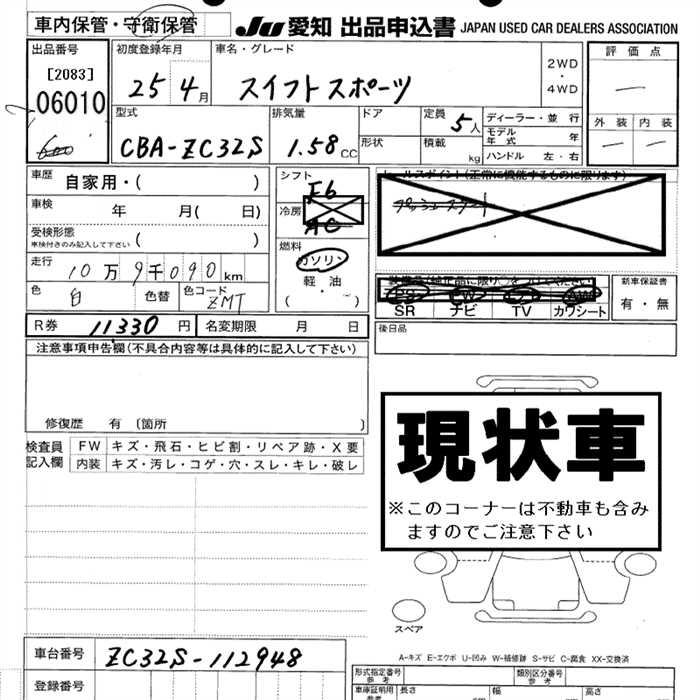 車内保管・守衛保管
JU 愛知 出品申込書 JAPAN USED CAR DEALERS ASSOCIATION
出品番号 初度登録年月 車名・グレード 評価点
[2083]
06010
25 4月 スイフトスポーツ 2WD・4WD
型式 排気量 ドア 定員 ディーラー・並行 外装 内装
CBA-ZC32S 1.58CC 5人 モデル年式 年
形状 積載 kg ハンドル 左・右
車歴 自家用・( )
シフト F6
セールスポイント(正常に機能するものに限ります)
車検 年 月( 日)
冷房 AC
プッシュスタート
受検形態 車検付きのみ記入して下さい ( )
燃料 ガソリン 軽・油 ・( )
走行 10万9千090km
新車保証書
有・無
色 白 色替 色コード ZMT
SR ナビ TV カワシート
R券 11330円 名変期限 月 日
後日品
注意事項申告欄(不具合内容等は具体的に記入して下さい)
修復歴 有 〔箇所 〕
検査員記入欄 FW キズ・飛石・ヒビ割・リペア跡・X要
内装 キズ・汚レ・コゲ・穴・スレ・キレ・破レ
現状車
※このコーナーは不動車も含み
ますのでご注意下さい
スペア
A-キズ E-エクボ U-凹み W-補修跡 S-サビ C-腐食 XX-交換済
車台番号 ZC32S-112948
登録番号
型式指定番号 参考 類別区分番号 参考
車庫証明用 参考 長さ 幅 高さ